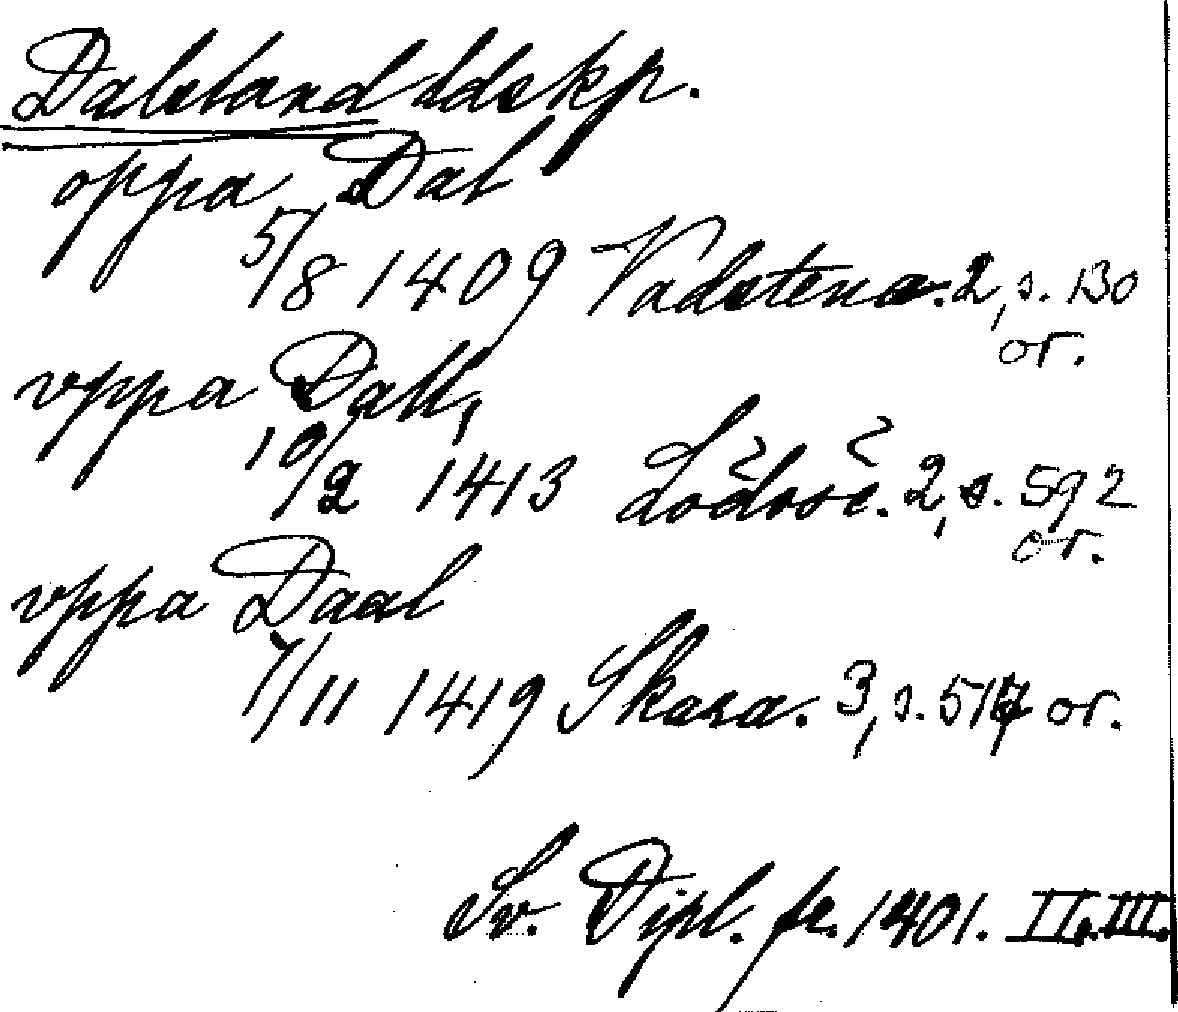 Dalsland ldskp.
oppa Dal
5/8 1409 Vadstena. 2, s. 130
or.
vppa Dall,
10/2 1413 Lødose. 2, s. 592
or.
vppa Daal
7/11 1419 Skara. 3, s. 517 or.
Sv. Dipl. fr. 1401. II. III.